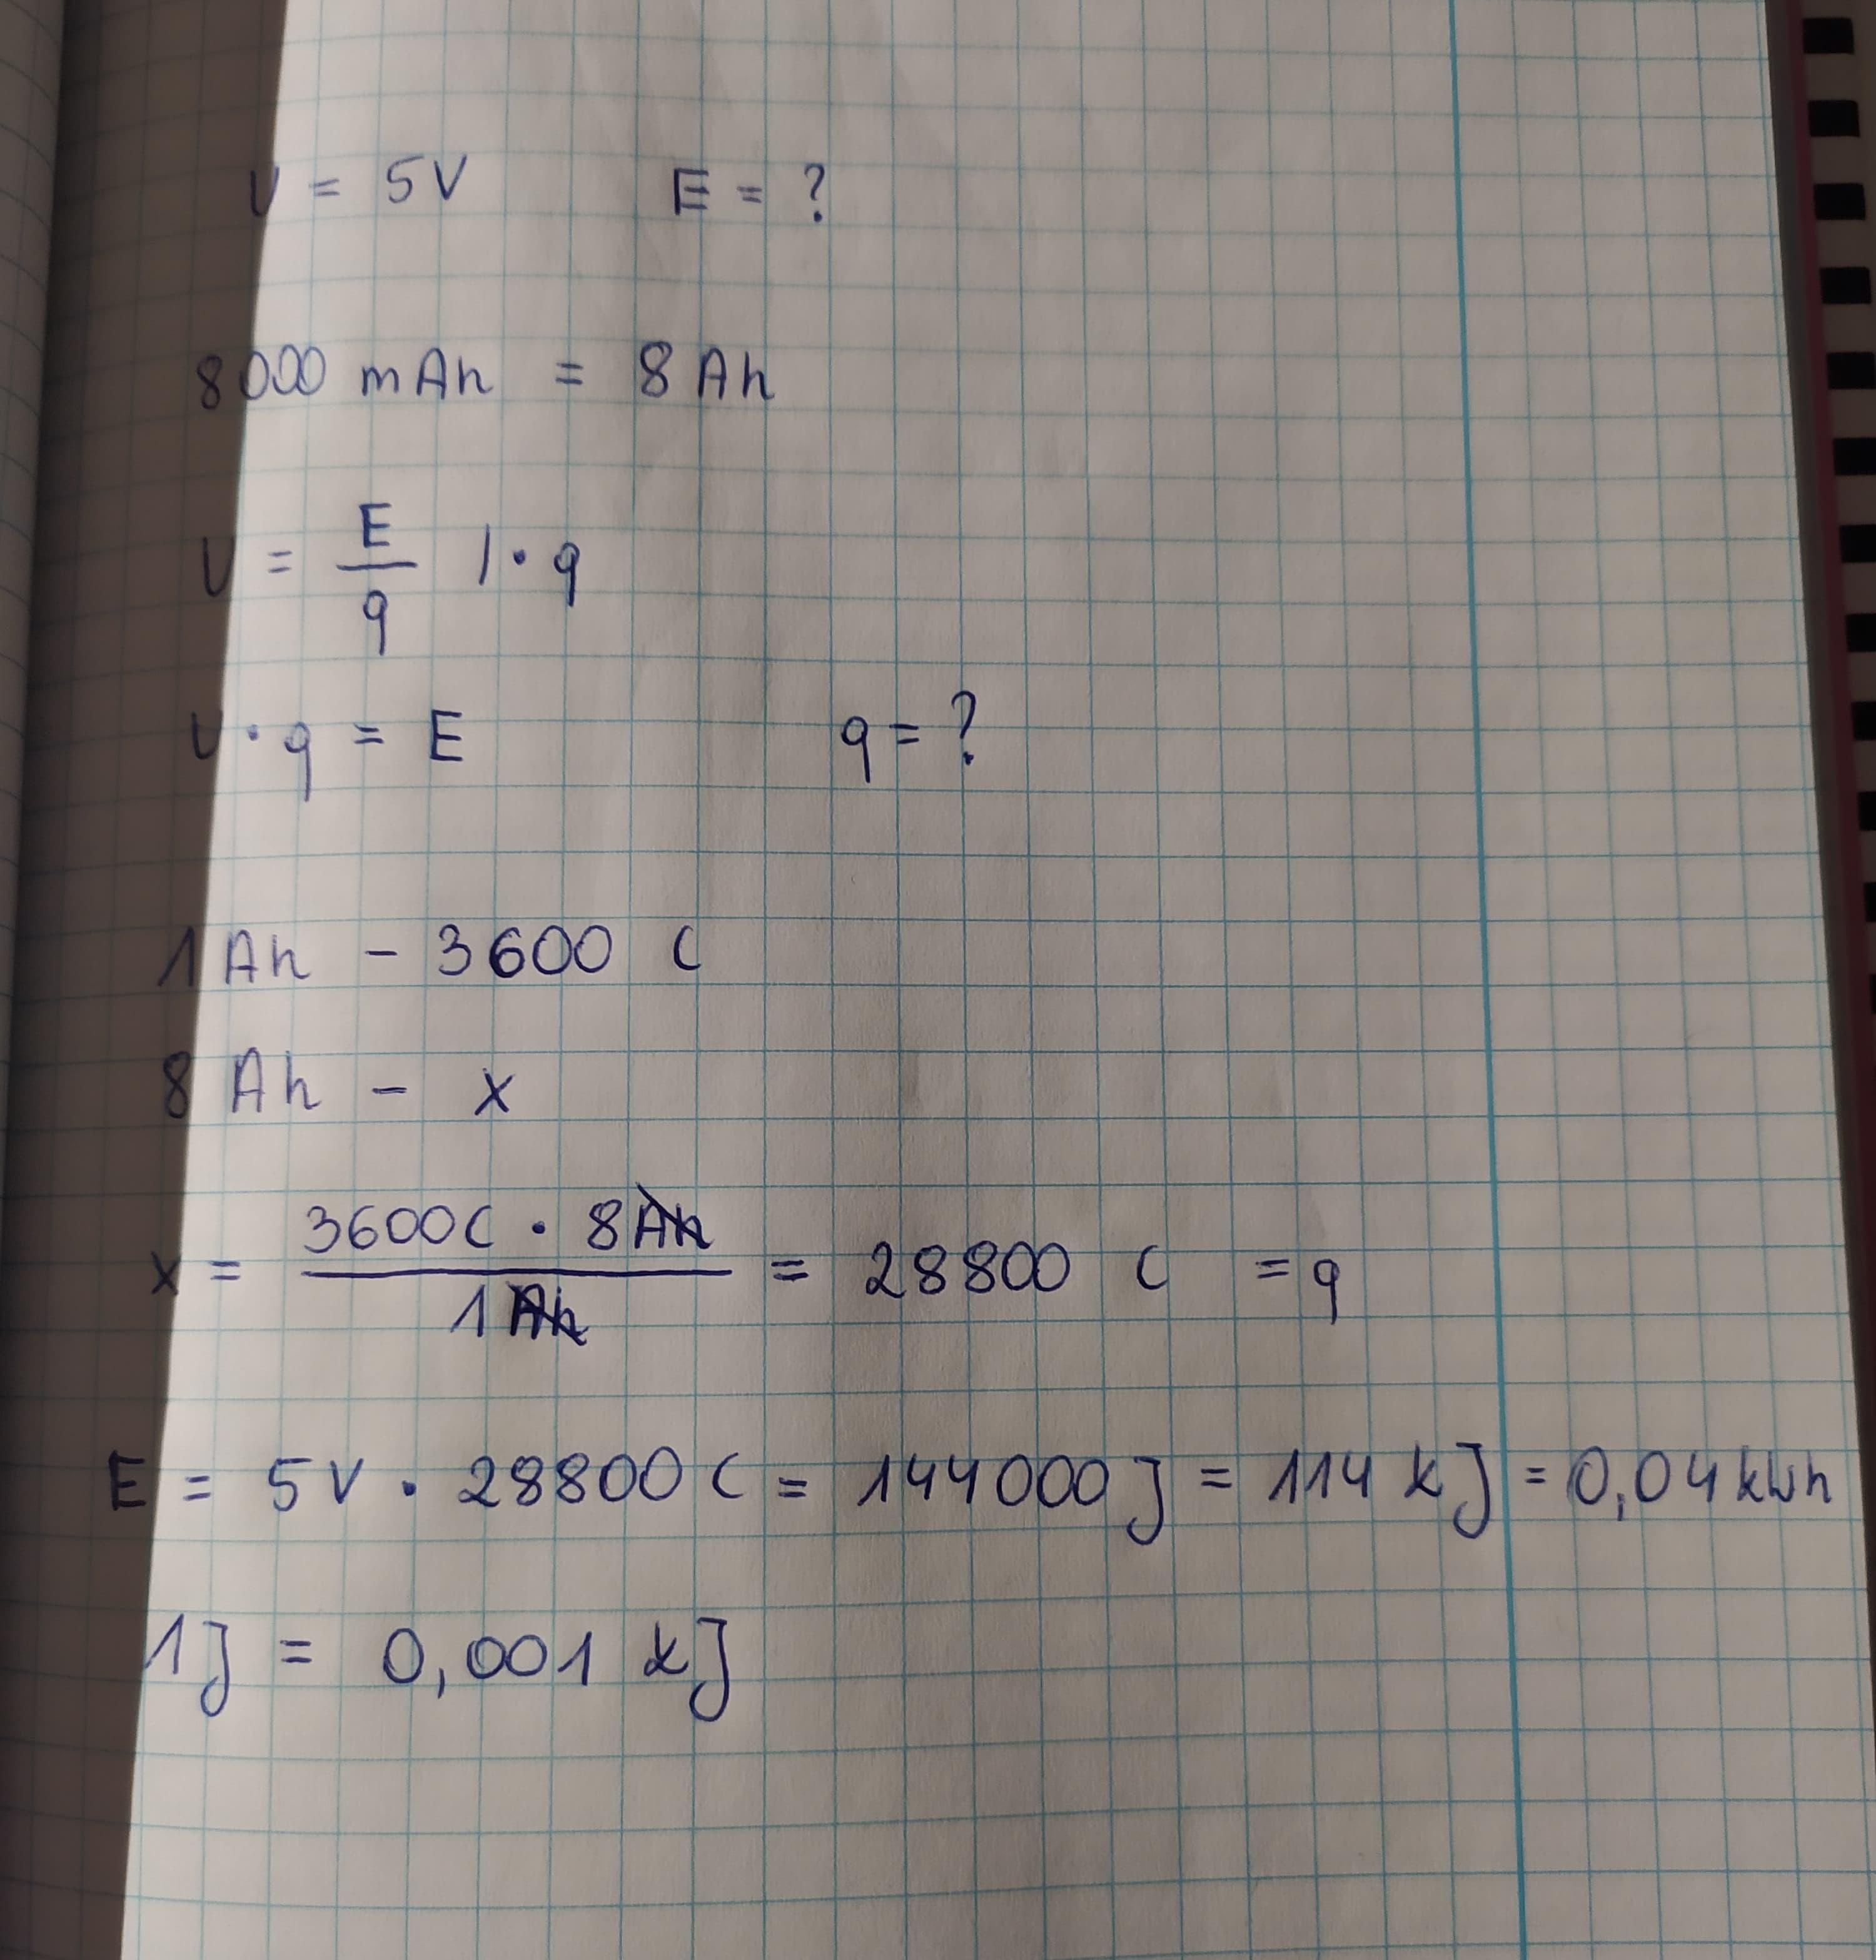 U = 5V E = ?
8000 mAh = 8 Ah
U = E/q /· q
U · q = E q = ?
1 Ah - 3600 C
8 Ah - x
x = 3600C · 8Ah / 1Ah = 28800 C = q
E = 5V · 28800 C = 144000 J = 114 kJ = 0,04 kWh
1J = 0,001 kJ